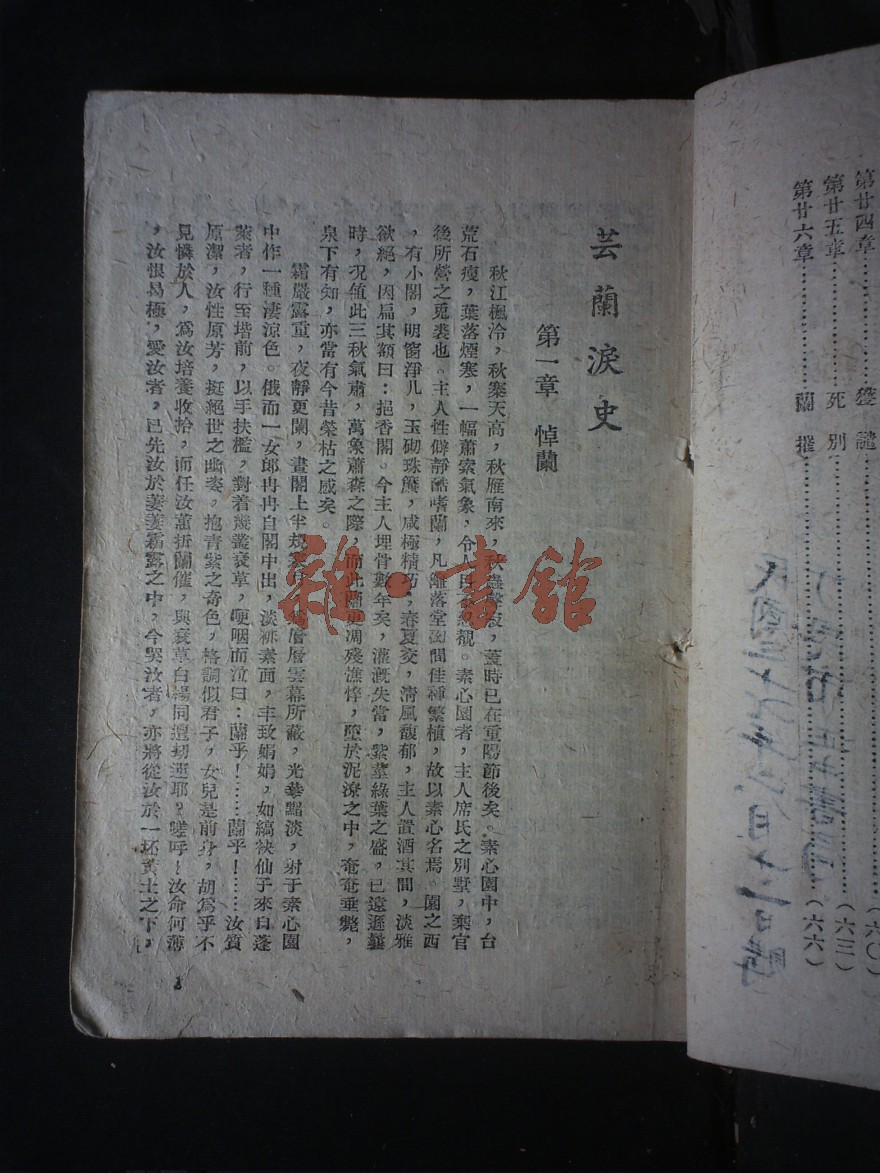 第廿四章…………變譴…………（六〇）
第廿五章…………死別…………（六三）
第廿六章…………蘭摧…………（六六）
芸蘭淚史
第一章 悼蘭
秋江楓冷，秋寒天高，秋雁南來，秋蟲聲寂，蓋時已在重陽節後矣。素心園中，台
荒石瘦，葉落煙塞，一幅蕭索氣象，令人目不忍覩。素心園者，主人席氏之別墅，棄官
後所營之菟裘也。主人性僻靜酷嗜蘭，凡籬落堂砌間佳種繁植，故以素心名焉。園之西
，有小閣，明窗淨几，玉砌珠簾，咸極精巧，春夏交，清風馥郁，主人置酒其間，淡雅
欲絕，因扁其額曰：挹香閣。今主人埋骨數年矣，灌溉失當，紫莖綠葉之盛，已遠遜曩
時，况值此三秋氣肅，萬象蕭森之際，而此蘭更凋殘憔悴，墮於泥潦之中，奄奄垂斃，
泉下有知，亦當有今昔榮枯之感矣。
霜嚴露重，夜靜更闌，畫閣上半規寒月，為層層雲幕所蔽，光華黯淡，射于素心園
中作一種淒涼色。俄而一女郎冉冉自閣中出，淡裙素面，丰致娟娟，如縞袂仙子來自蓬
萊者，行至堦前，以手扶檻，對着幾叢衰草，哽咽而泣曰：蘭乎！……蘭乎！……汝質
原潔，汝性原芳，挺絕世之幽姿。抱青紫之奇色，格調似君子，女兒是前身，胡為乎不
見憐於人，為汝培養收拾，而任汝蕙折蘭催，與衰草白楊同遭刼運耶？嗟呼！汝命何薄
，汝恨曷極，愛汝者，已先汝於萋萋霜露之中，今哭汝者，亦將從汝於一坯黃土之下，
1
雜·書館